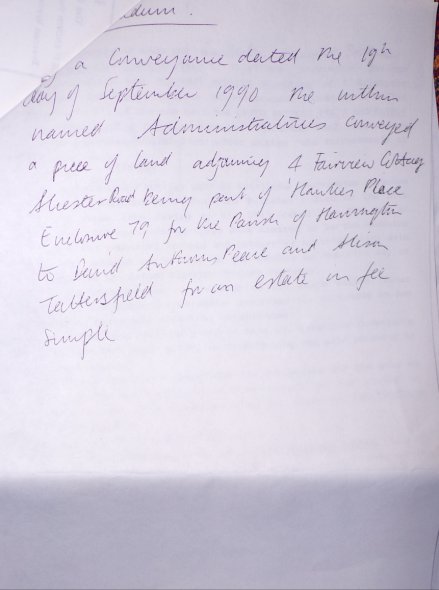 dum.
By a Conveyance dated the 19th
day of September 1990 the within
named Administratrices conveyed
a piece of land adjoining 4 Fairview Cottages
Road being part of 'Hawkes Place
Enclosure 79 for the Parish of Hannington
to David Anthony Pearce and Alison
Tattersfield for an estate in fee
simple